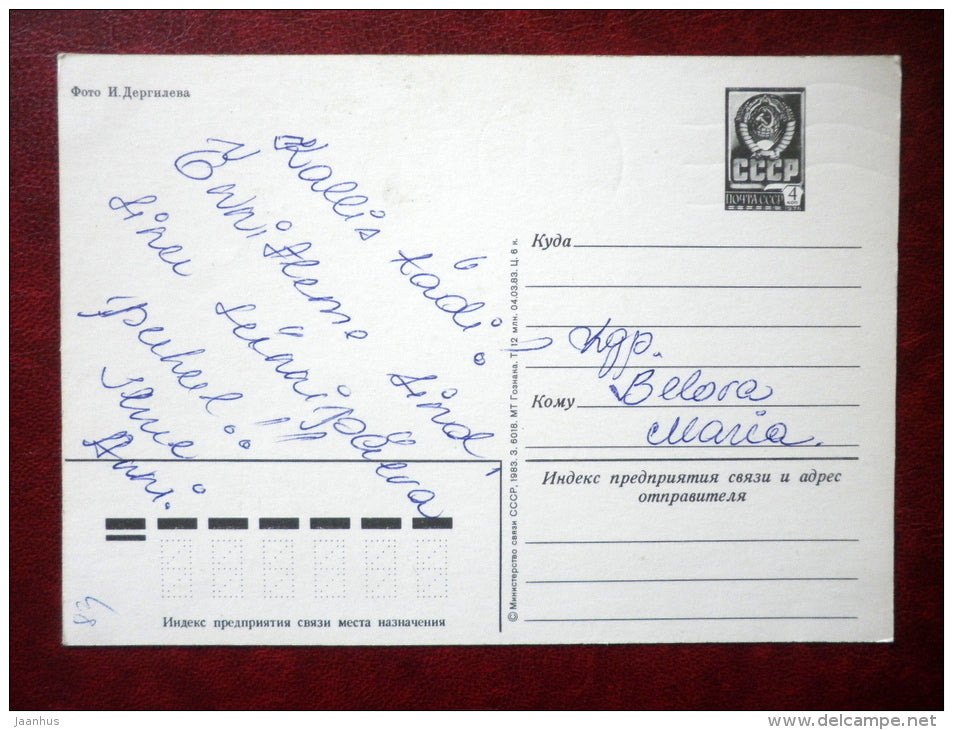 Фото И. Дергилева
СССР
ПОЧТА СССР
4
Kallis tädi!
Õnnitleme Sind,
Sinu sünnipäeva
puhul!!!
Anni.
Куда
Кдр.
Кому Belova
Maria.
Индекс предприятия связи и адрес
отправителя
© Министерство связи СССР, 1983. З. 6018. МТ Гознака. Т. 12 млн. 04.03.83. Ц. 6 к.
Индекс предприятия связи места назначения
83
jaanhus
www.delcampe.net